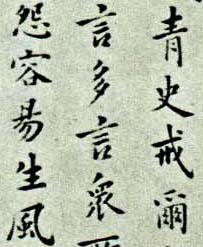 青史戒爾
言多言衆
怨容易生風